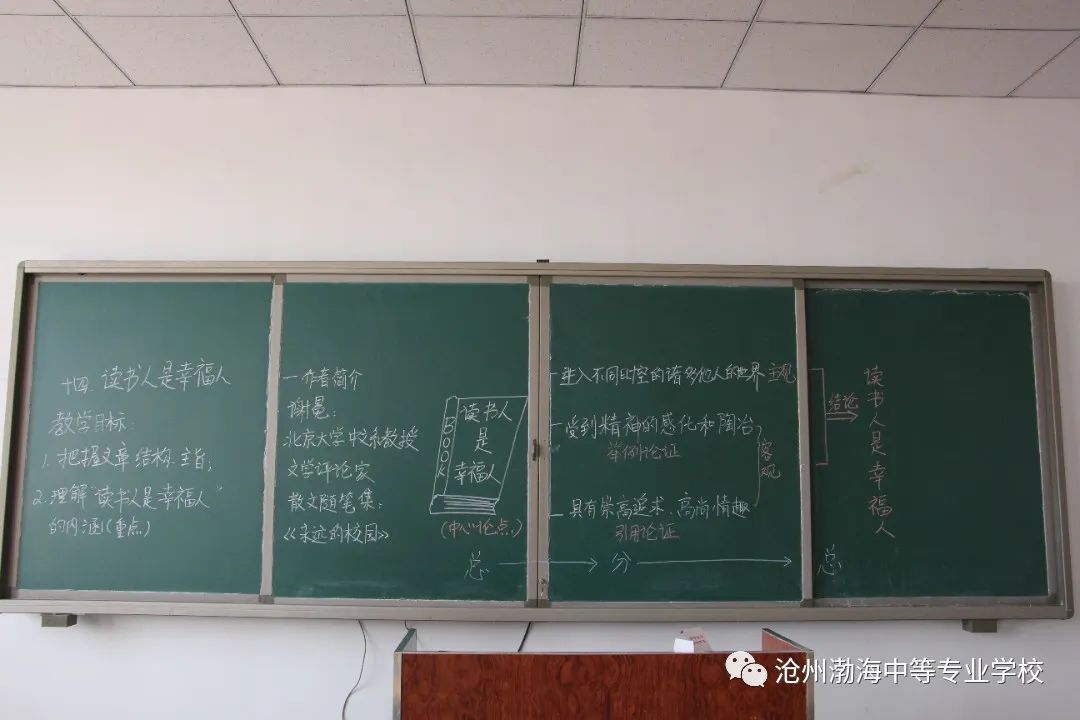 十四.读书人是幸福人
教学目标:
1.把握文章结构、主旨,
2.理解"读书人是幸福人"
的内涵(重点)
一作者简介
谢冕:
北京大学中文系教授
文学评论家
散文随笔集:
《永远的校园》
BOOK
读书人
是
幸福人
(中心论点)
进入不同时空的诸多他人的世界 主观
受到精神的感化和陶冶
举例论证
客观
具有崇高追求、高尚情趣
引用论证
总 分 总
结论
读书人是幸福人
沧州渤海中等专业学校